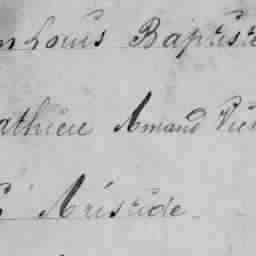 n Louis Baptiste
athieu Amand Vic
Aristide